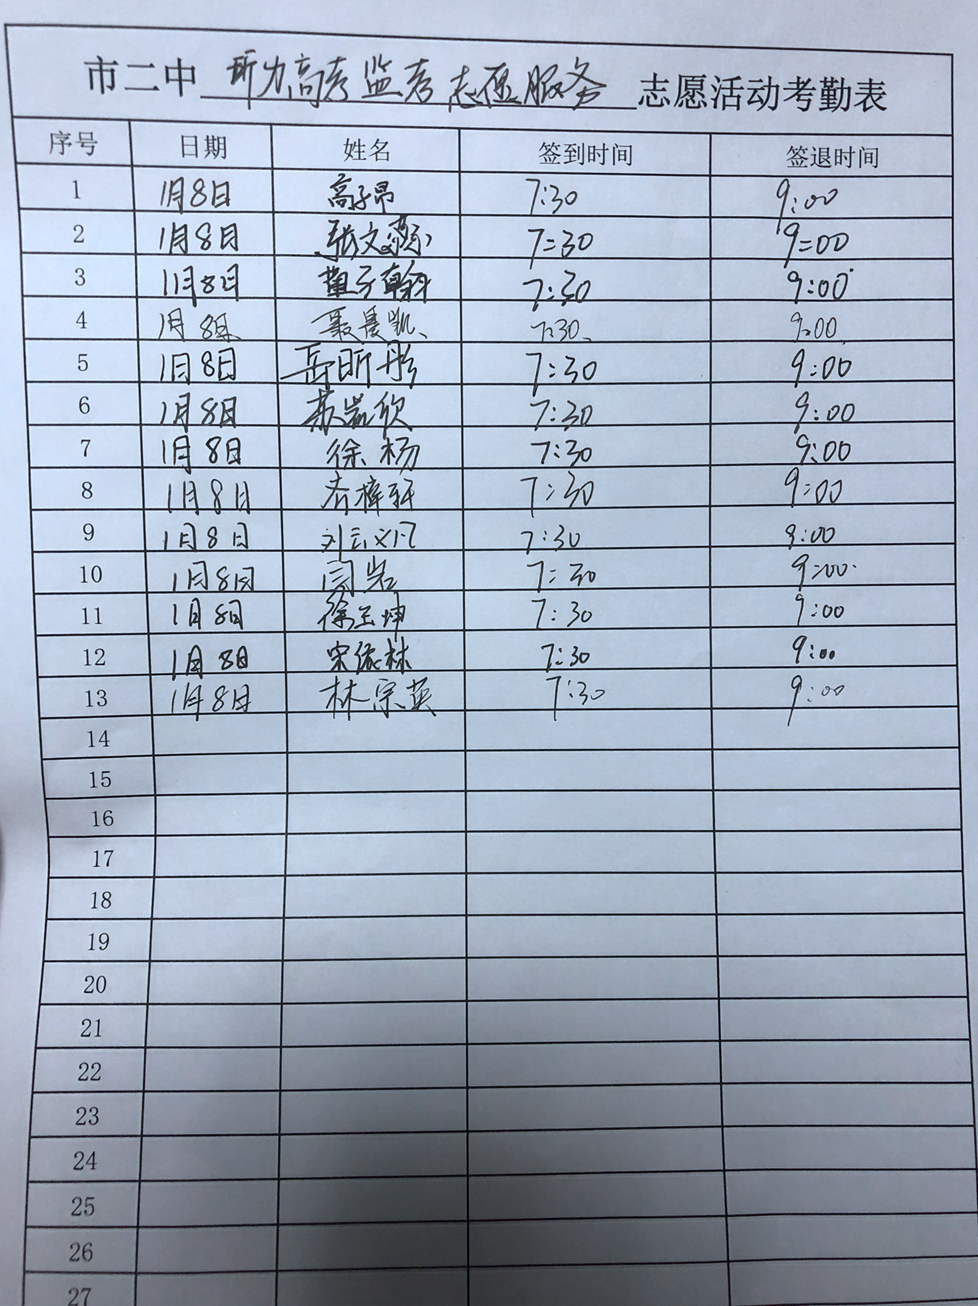 市二中 听力高考监考志愿服务 志愿活动考勤表
序号 日期 姓名 签到时间 签退时间
1 1月8日 高子昂 7:30 9:00
2 1月8日 张文灏 7:30 9:00
3 1月8日 董子翰 7:30 9:00
4 1月8日 聂晨凯 7:30 9:00
5 1月8日 岳昕彤 7:30 9:00
6 1月8日 7:30 9:00
7 1月8日 徐杨 7:30 9:00
8 1月8日 7:30 9:00
9 1月8日 7:30 9:00
10 1月8日 闫岩 7:30 9:00
11 1月8日 徐玉坤 7:30 9:00
12 1月8日 宋依林 7:30 9:00
13 1月8日 林宗英 7:30 9:00
14
15
16
17
18
19
20
21
22
23
24
25
26
27